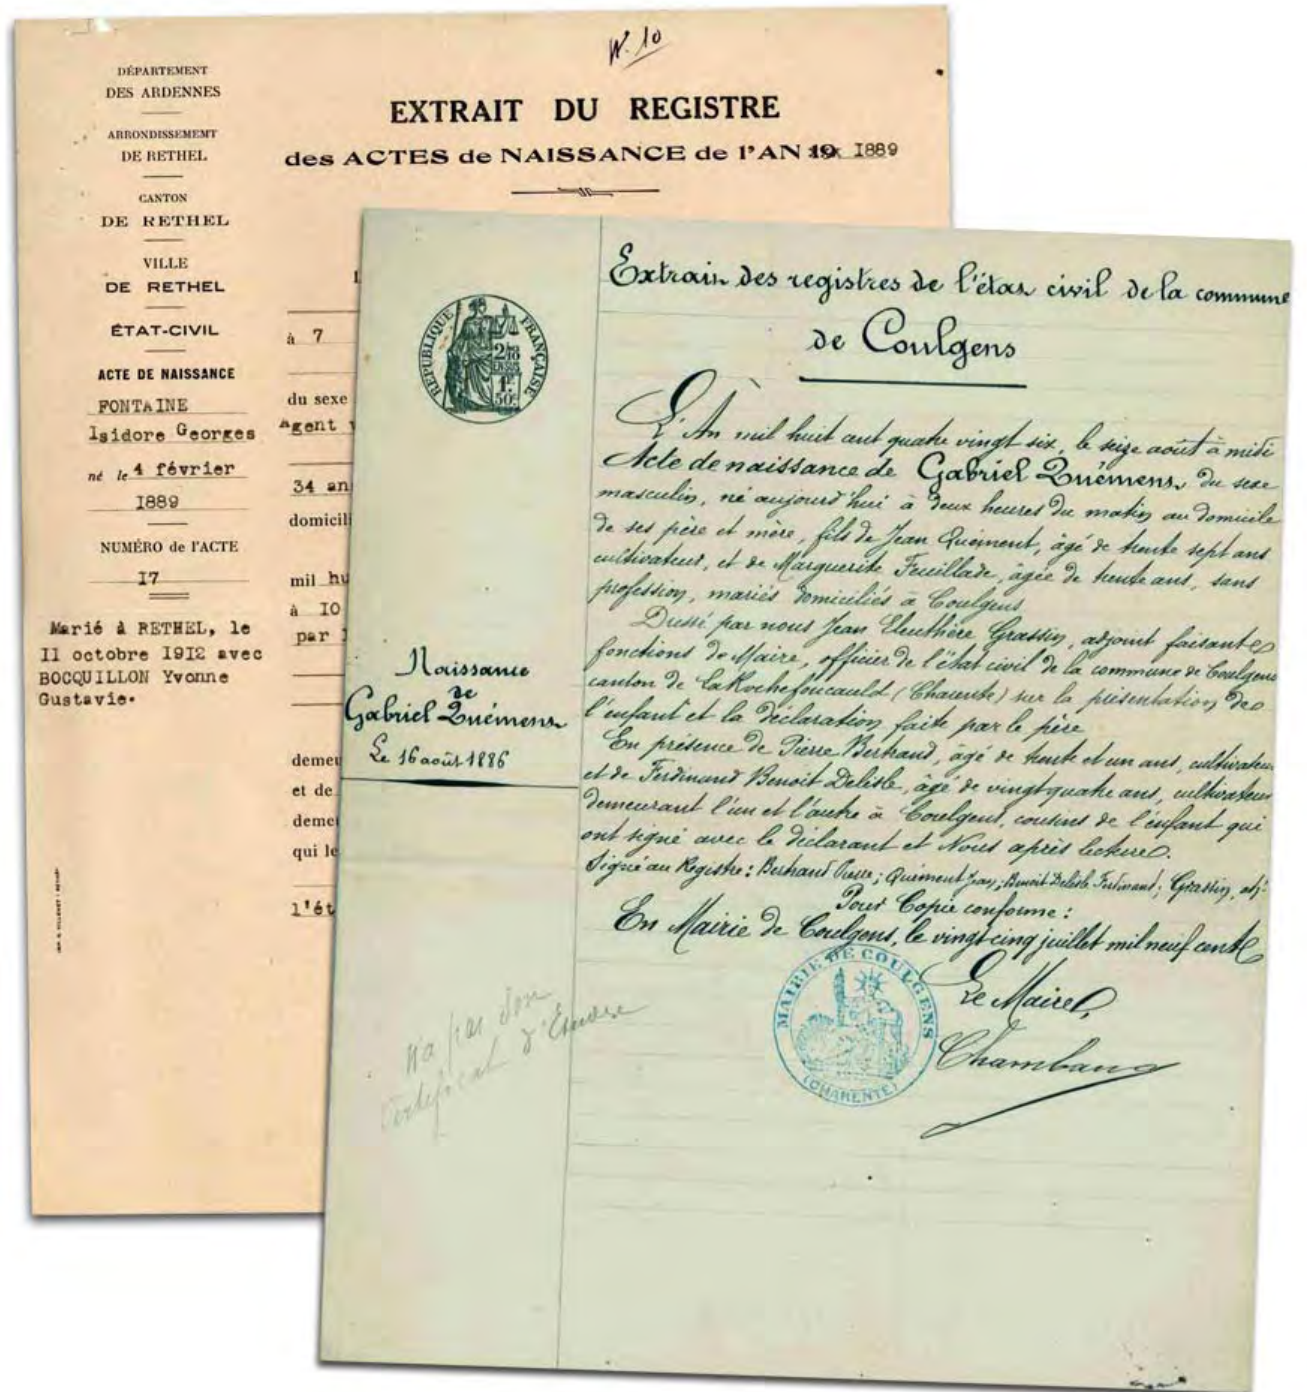 N. 10
DÉPARTEMENT
DES ARDENNES
ARRONDISSEMEMT
DE RETHEL
CANTON
DE RETHEL
VILLE
DE RETHEL
ÉTAT-CIVIL
ACTE DE NAISSANCE
FONTAINE
Isidore Georges
né le 4 février
1889
NUMÉRO de l'ACTE
17
Marié à RETHEL, le
11 octobre 1912 avec
BOCQUILLON Yvonne
Gustavie.
EXTRAIT DU REGISTRE
des ACTES de NAISSANCE de l'AN 19 1889
à 7
du sexe
Agent
34 an
domicil
mil hu
à 10
par
demeu
et de
deme
qui le
l'ét
Extrait des registres de l'état civil de la commune
de Coulgens
RÉPUBLIQUE FRANÇAISE
2/10
EN SUS
1F
50c
L'An mil huit cent quatre vingt six, le seize août à midi
Acte de naissance de Gabriel Quément, du sexe
masculin, né aujourd'hui à deux heures du matin au domicile
de ses père et mère, fils de Jean Quément, âgé de trente sept ans
cultivateur, et de Marguerite Feuillade, âgée de trente ans, sans
profession, mariés domiciliés à Coulgens
Dressé par nous Jean Eleuthère Grassin, adjoint faisant
fonctions de Maire, officier de l'état civil de la commune de Coulgens
canton de LaRochefoucauld (Charente) sur la présentation de
l'enfant et la déclaration faite par le père
En présence de Pierre Bertrand, âgé de trente et un ans, cultivateur
et de Ferdinand Benoit Delisle, âgé de vingt quatre ans, cultivateur
demeurant l'un et l'autre à Coulgens, cousins de l'enfant qui
ont signé avec le déclarant et Nous après lecture.
Signé au Registre : Bertrand Pierre ; Quément Jean ; Benoit Delisle Ferdinand ; Grassin, adj.
Pour Copie conforme :
En Mairie de Coulgens, le vingt cinq juillet mil neuf cent
Le Maire,
Chambaud
MAIRIE DE COULGENS
(CHARENTE)
Naissance
de
Gabriel Quément
Le 16 août 1886
n'a pas son
certificat d'Etudes